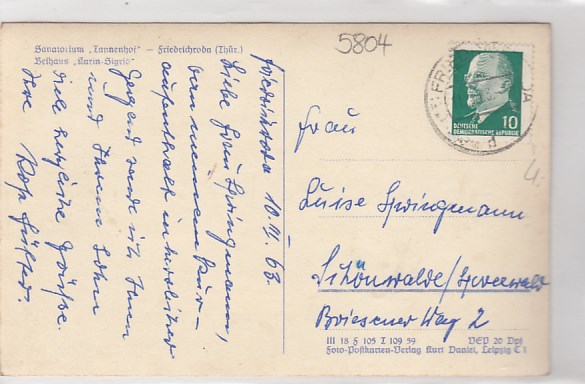 Sanatorium „Tannenhof" – Friedrichroda (Thür.)
Beihaus „Karin-Sigrid"
5804
Friedrichroda 10.11.63
Liebe Frau Springmann,
von meinem Kur–
aufenthalt in herrlicher
Gegend sende ich Ihnen
und Ihrem Sohn
viele herzliche Grüße.
Ihre
DEUTSCHE
DEMOKRATISCHE REPUBLIK
10
Frau
Luise Springmann
Schönwalde/Spreewald
Briesener Weg 2
4.
III 18 F 105 I 109 59
VEP 20 Dpf
Foto-Postkarten-Verlag Kurt Daniel, Leipzig C 1